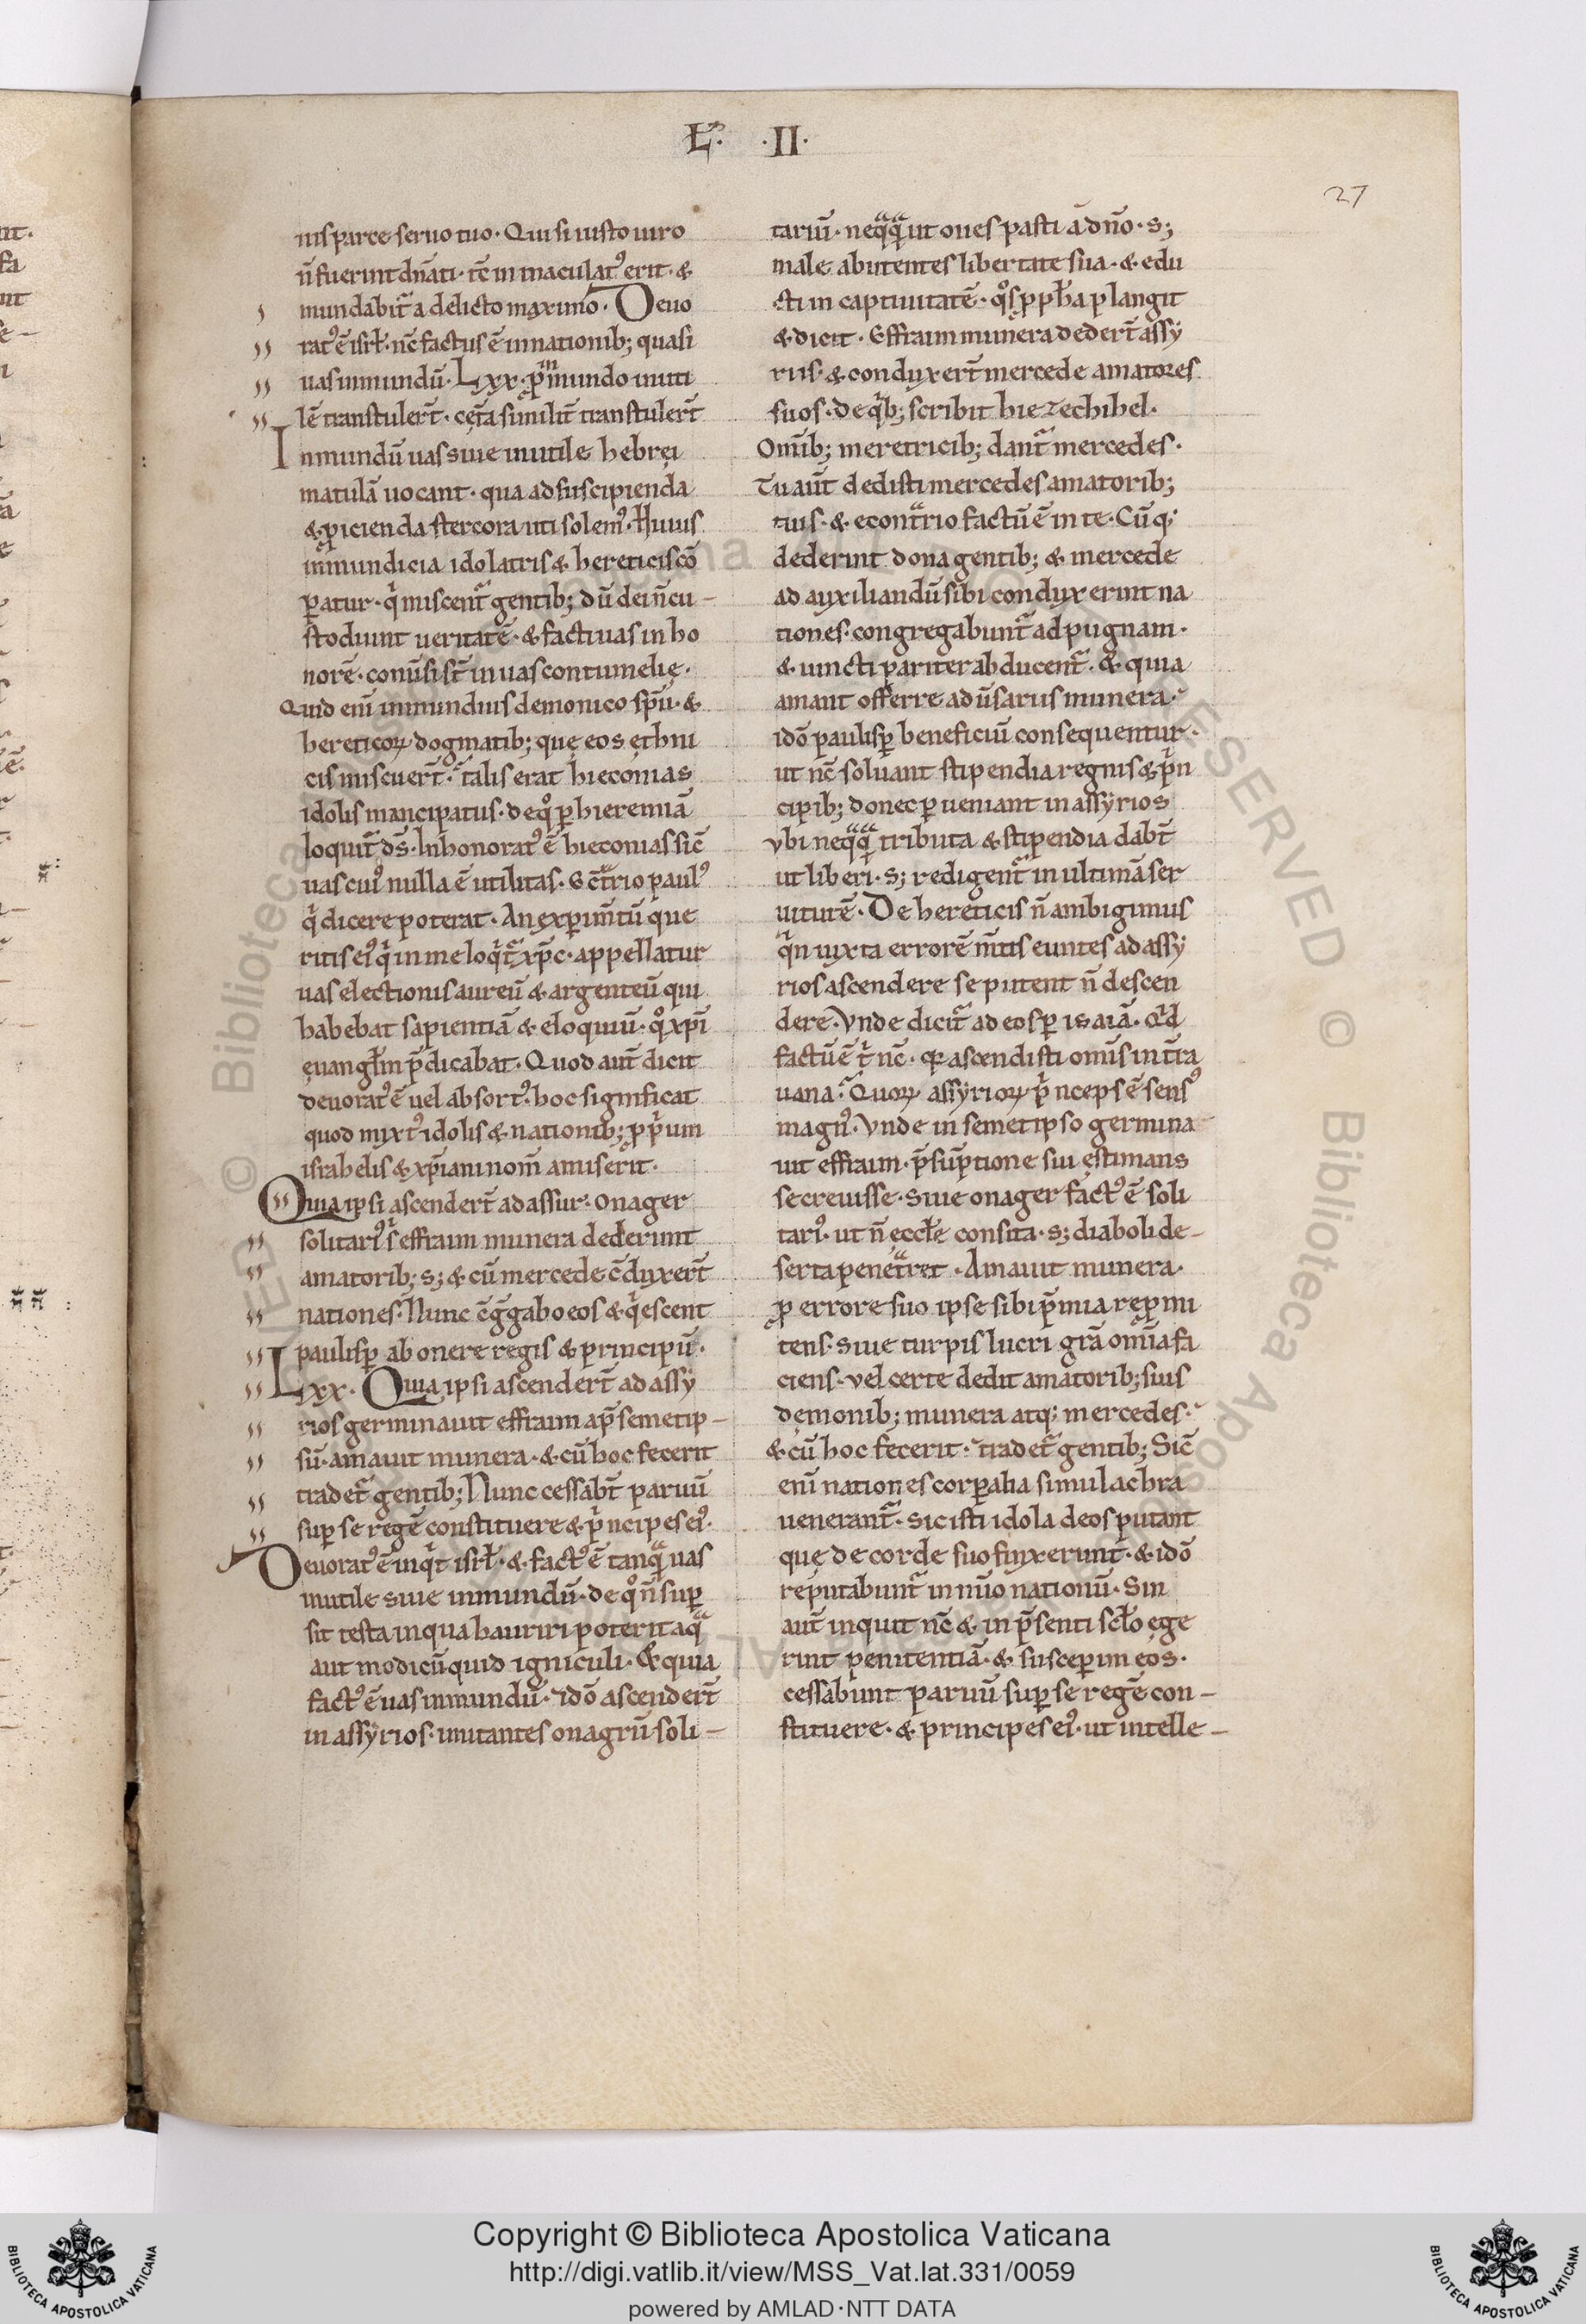 L͛. ·II·
27
nis parce seruo tuo· Qui si iusto uiro
n̄ fuerint dn̄ati· tc̄ inmaculat᾽ erit· &
mundabit᷑ a delicto maximo· Deuo
rat᾽ ē isrł· nc̄ factus ē innationib; quasi
uas inmundū· Lxx· ꝑmmundo inuti
lē transtulert̄· cet̨a similit̄ transtulert̄
Inmundū uas siue inutile hebręi
matulā uocant· qua ad suscipienda
& ꝓicienda stercora uti solem᾽· Huius
inmundicia idolatris & hereticis cō
ꝑatur· qͥ miscent᷑ gentib; dū dei n̄ cu-
stodiunt ueritatē· & facti uas in ho
norē· conūsi st̄ in uas contumelię·
Quid enī inmundius demonico sp̄u· &
hereticoꝝ dogmatib; quę eos ethni
cis miscuert̄· talis erat hieconias
idolis mancipatus· de qͦ ꝑ hieremiā
loquit᷑ d̄s· Inhonorat᾽ ē hieconias sic̄
uas cui᾽ nulla ē utilitas· Ec̄trio paul᾽
qͥ dicere poterat· An exꝑim̄tū que
ritis ei᾽ qͥ in me loqͥt᷑ xp̄c· appellatur
uas electionis aureū & argenteū qui
habebat sapientiā & eloquiū· qͦ xp̄i
euangłm p̄dicabat· Quod aut̄ dicit
deuorat᾽ ē uel absort᾽· hoc significat
quod mixt᾽ idolis & nationib; ꝓpͥum
israhelis & xp̄iani nom̄ amiserit·
Quia ipsi ascendert̄ ad assur· onager
solitari᾽ sͥ effraim munera dederunt
amatorib; s; & cū mercede c̄duxert̄
nationes· Nunc c̄gḡgabo eos & qͥescent
paulisꝑ ab onere regis & principū·
Lxx· Quia ipsi ascendert̄ ad assy
rios germinauit effraim ap̄ semetip-
sū· amauit munera· & cū hoc fecerit
tradet᷑ gentib; Nunc cessabt̄ paruū
suꝑ se regē constituere & pͥncipes ei᾽·
Deuorat᾽ ē inqͥt isrł· & fact᾽ ē tanqͣ uas
inutile siue inmundū· de qͦ n̄ suꝑ
sit testa in qua hauriri poterit aqͣ
aut modicū quid igniculi· & quia
fact᾽ ē uas inmundū· idō ascendert̄
in assyrios· imitantes onagrū soli-
tariū· neqͣqͣ ut oues pasti a dn̄o· s;
male abutentes libertate sua· & edu
cti in captiuitatē· qͦs ꝓpħa plangit
& dicit· Effraim munera dedert̄ assy
riis· & conduxert̄ mercede amatores
suos· de qͥb; scribit hiezechihel·
Om̄ib; meretricib; dant᷑ mercedes·
Tu aut̄ dedisti mercedes amatorib;
tuis· & econtͣrio factū ē in te· Cūq;
dederint dona gentib; & mercede
ad auxiliandū sibi conduxerint na
tiones· congregabunt᷑ ad pugnam·
& uincti pariter abducent᷑· & quia
amant offerre aduersariis munera·
idō paulisꝑ beneficiū consequentur·
ut nc̄ soluant stipendia regnis & pͥn
cipib; donec ꝑueniant in assyrios
vbi neqͣqͣ tributa & stipendia dabt̄
ut liberi· s; redigent᷑ in ultimā ser
uitutē· De hereticis n̄ ambigimus
qͥn iuxta errorē m̄tis euntes ad assy
rios ascendere se putent n̄ descen
dere· Vnde dicit᷑ ad eos ꝑ isaiā· Qͥd
factū ē tͥ nc̄· quia ascendisti om̄s in t̄ta
uana· Quoꝝ assyrioꝝ pͥnceps ē sens᾽
magn᾽· Vnde in semetipso germina
uit effraim· p̄sūptione sui ęstimans
se creuisse· siue onager fact᾽ ē soli
tari᾽· ut n̄ eccłę consita· s; diaboli de-
serta penetͣret· Amauit munera·
ꝓ errore suo ipse sibi p̄mia reꝓmi
tens· siue turpis lucri grā om̄ia fa
ciens· vel certe dedit amatorib; suis
demonib; munera atq; mercedes·
& cū hoc fecerit· tradet᷑ gentib; Sic̄
enī nationes corꝑalia simulachra
uenerant᷑· sic isti idola deos putant
quę de corde suo finxerunt· & idō
reputabunt᷑ in nūo nationū· Sin
aut̄ inquit nc̄ & in p̄senti scło ege
rint penitentiā· & susceperim eos·
cessabunt paruū suꝑ se regē con-
stituere· & principes ei᾽· ut intelle-
Copyright © Biblioteca Apostolica Vaticana
http://digi.vatlib.it/view/MSS_Vat.lat.331/0059
powered by AMLAD·NTT DATA
BIBLIOTECA APOSTOLICA VATICANA
BIBLIOTECA APOSTOLICA VATICANA